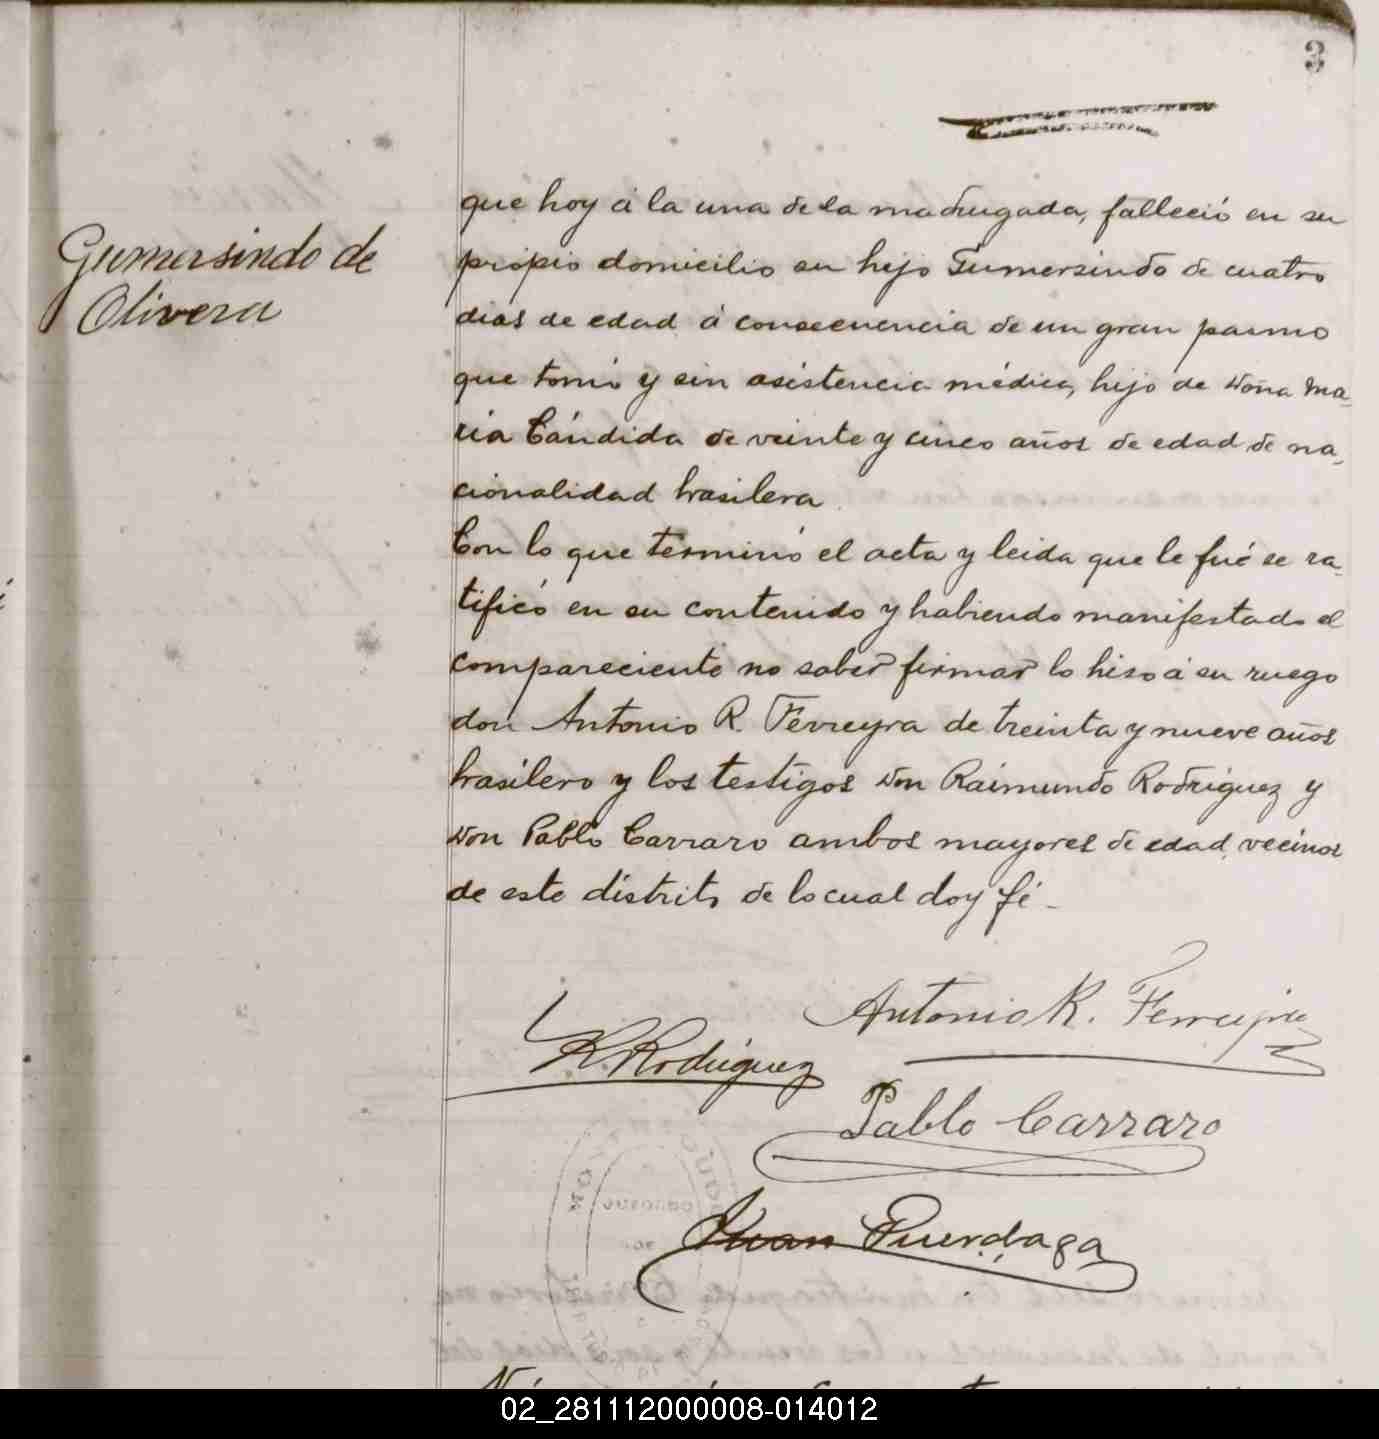 3
Gumersindo de
Olivera
que hoy á la una de la madrugada, falleció en su
propio domicilio su hijo Gumersindo de cuatro
dias de edad á consecuencia de un gran pasmo
que tomó y sin asistencia médica, hijo de doña Ma-
ria Cándida de veinte y cinco años de edad de na-
cionalidad brasilera
Con lo que terminó el acta y leida que le fué se ra-
tificó en su contenido y habiendo manifestado el
compareciente no saber firmar lo hiso á su ruego
don Antonio R. Ferreyra de treinta y nueve años
brasilero y los testigos don Raimundo Rodriguez y
don Pablo Carraro ambos mayores de edad, vecinos
de este distrito de lo cual doy fé -
Antonio R. Ferreyra
R. Rodriguez
Pablo Carraro
Juan
02_281112000008-014012